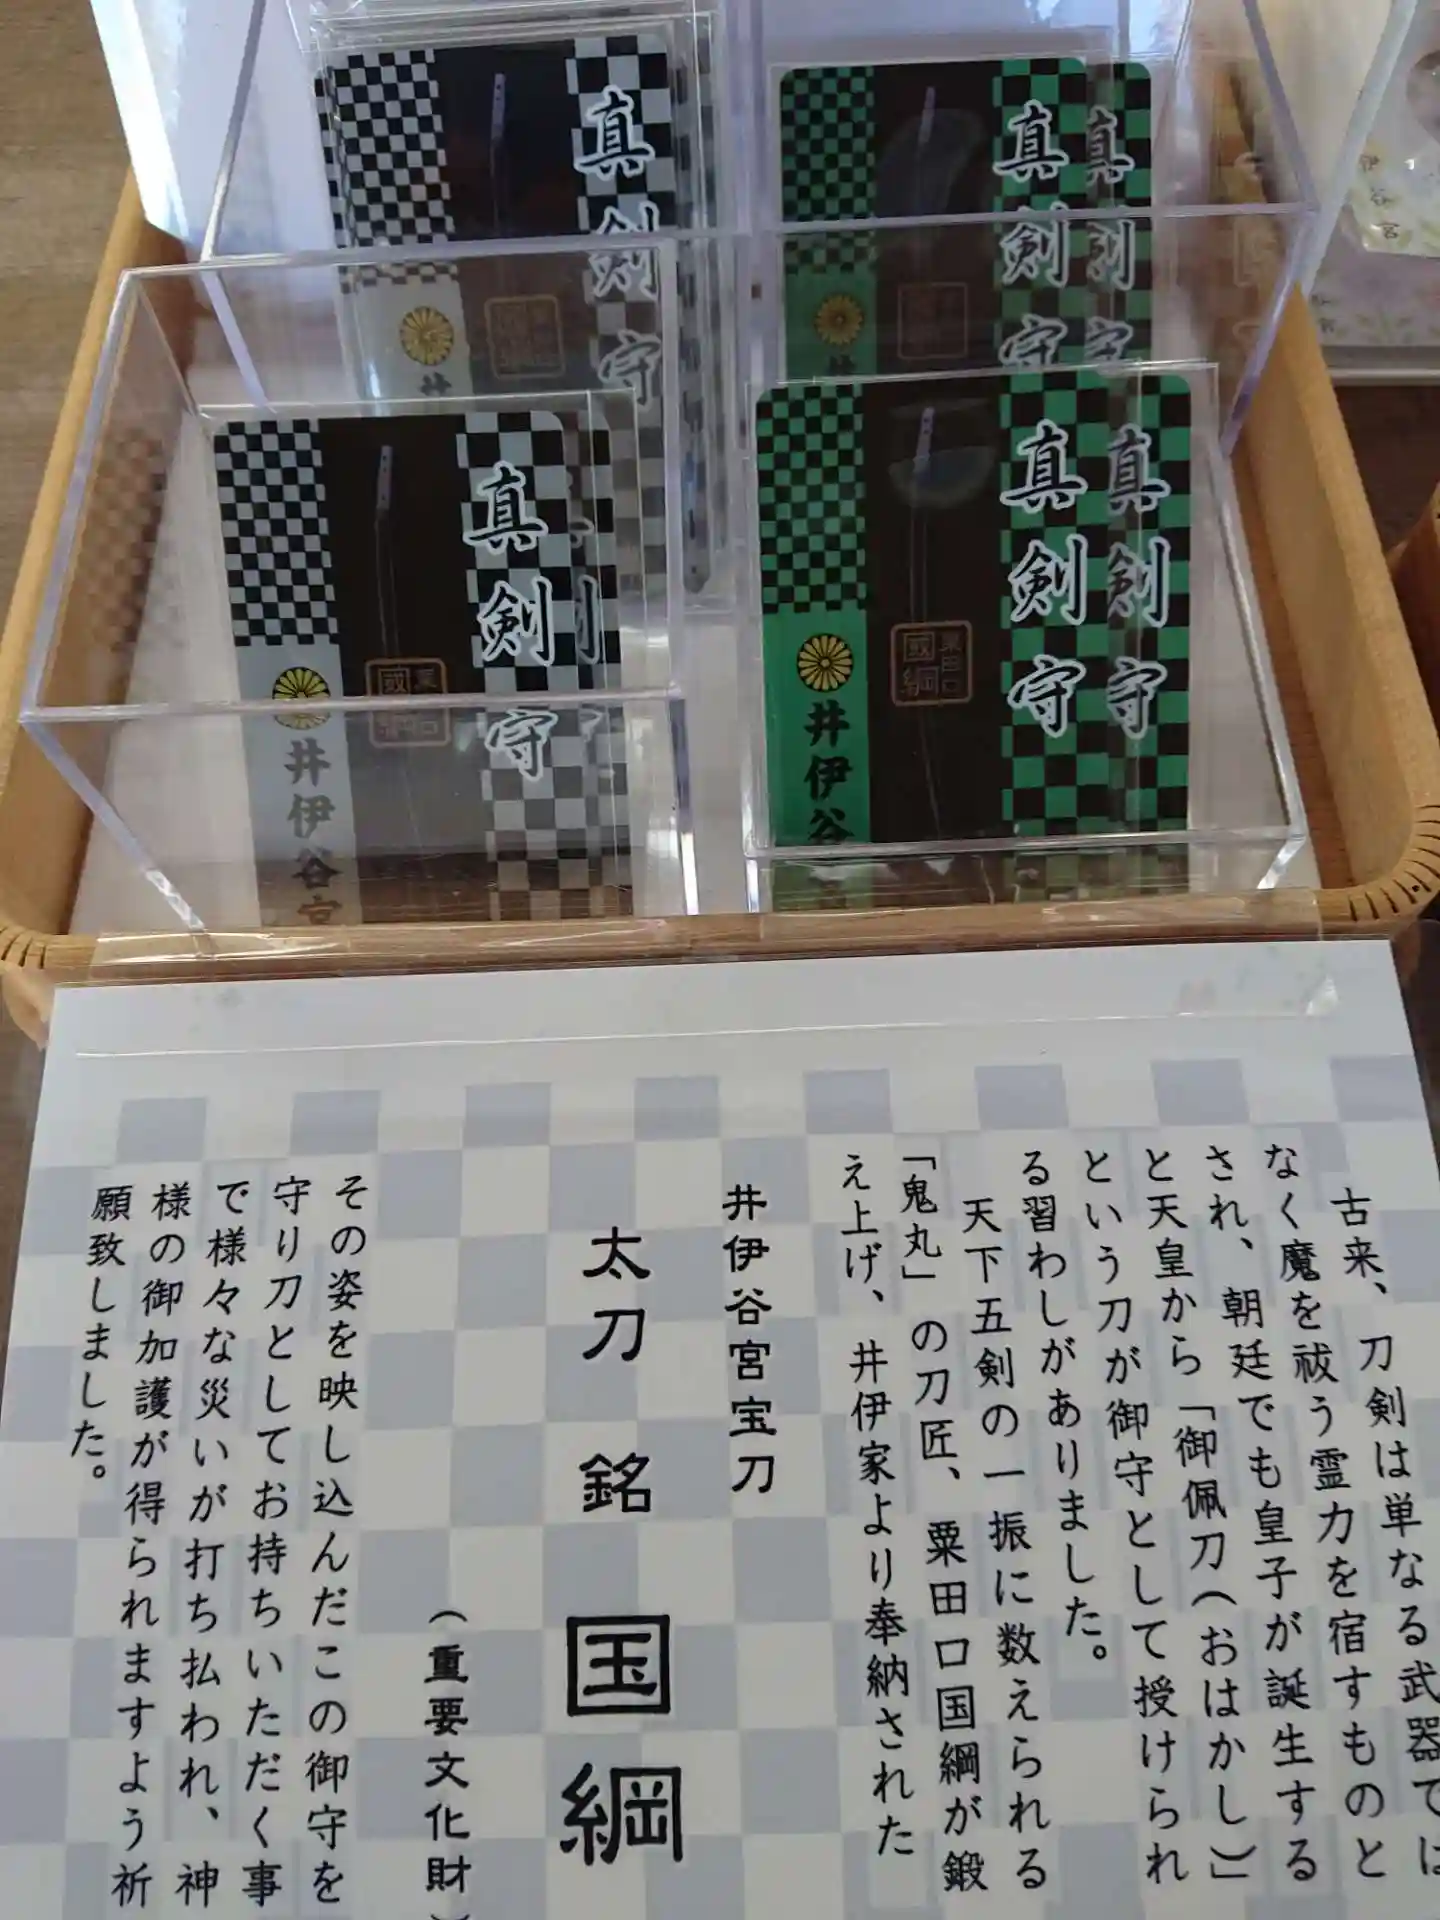 真剣守
井伊谷宮
粟田口
國綱
真剣守
井伊谷
粟田口
國綱
真剣守
真剣守
井
真剣守
真剣守
伊谷宮
古来、刀剣は単なる武器では
なく魔を祓う霊力を宿すものと
され、朝廷でも皇子が誕生する
と天皇から「御佩刀(おはかし)」
という刀が御守として授けられ
る習わしがありました。
天下五剣の一振に数えられる
「鬼丸」の刀匠、粟田口国綱が鍛
え上げ、井伊家より奉納された
井伊谷宮宝刀
太刀 銘 国綱
(重要文化財)
その姿を映し込んだこの御守を
守り刀としてお持ちいただく事
で様々な災いが打ち払われ、神
様の御加護が得られますよう祈
願致しました。